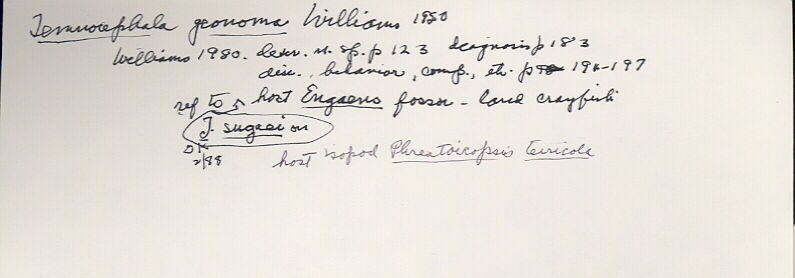 Temnocephala geonoma Williams 1980
Williams 1980. descr. n. sp. p 123 diagnosis p 183
disc., behavior, comp., etc. p 194-197
ref to host Engaeus fossor - land crayfish
T. sugaei on
OK
2/88
host isopod Phreatoicopsis terricola